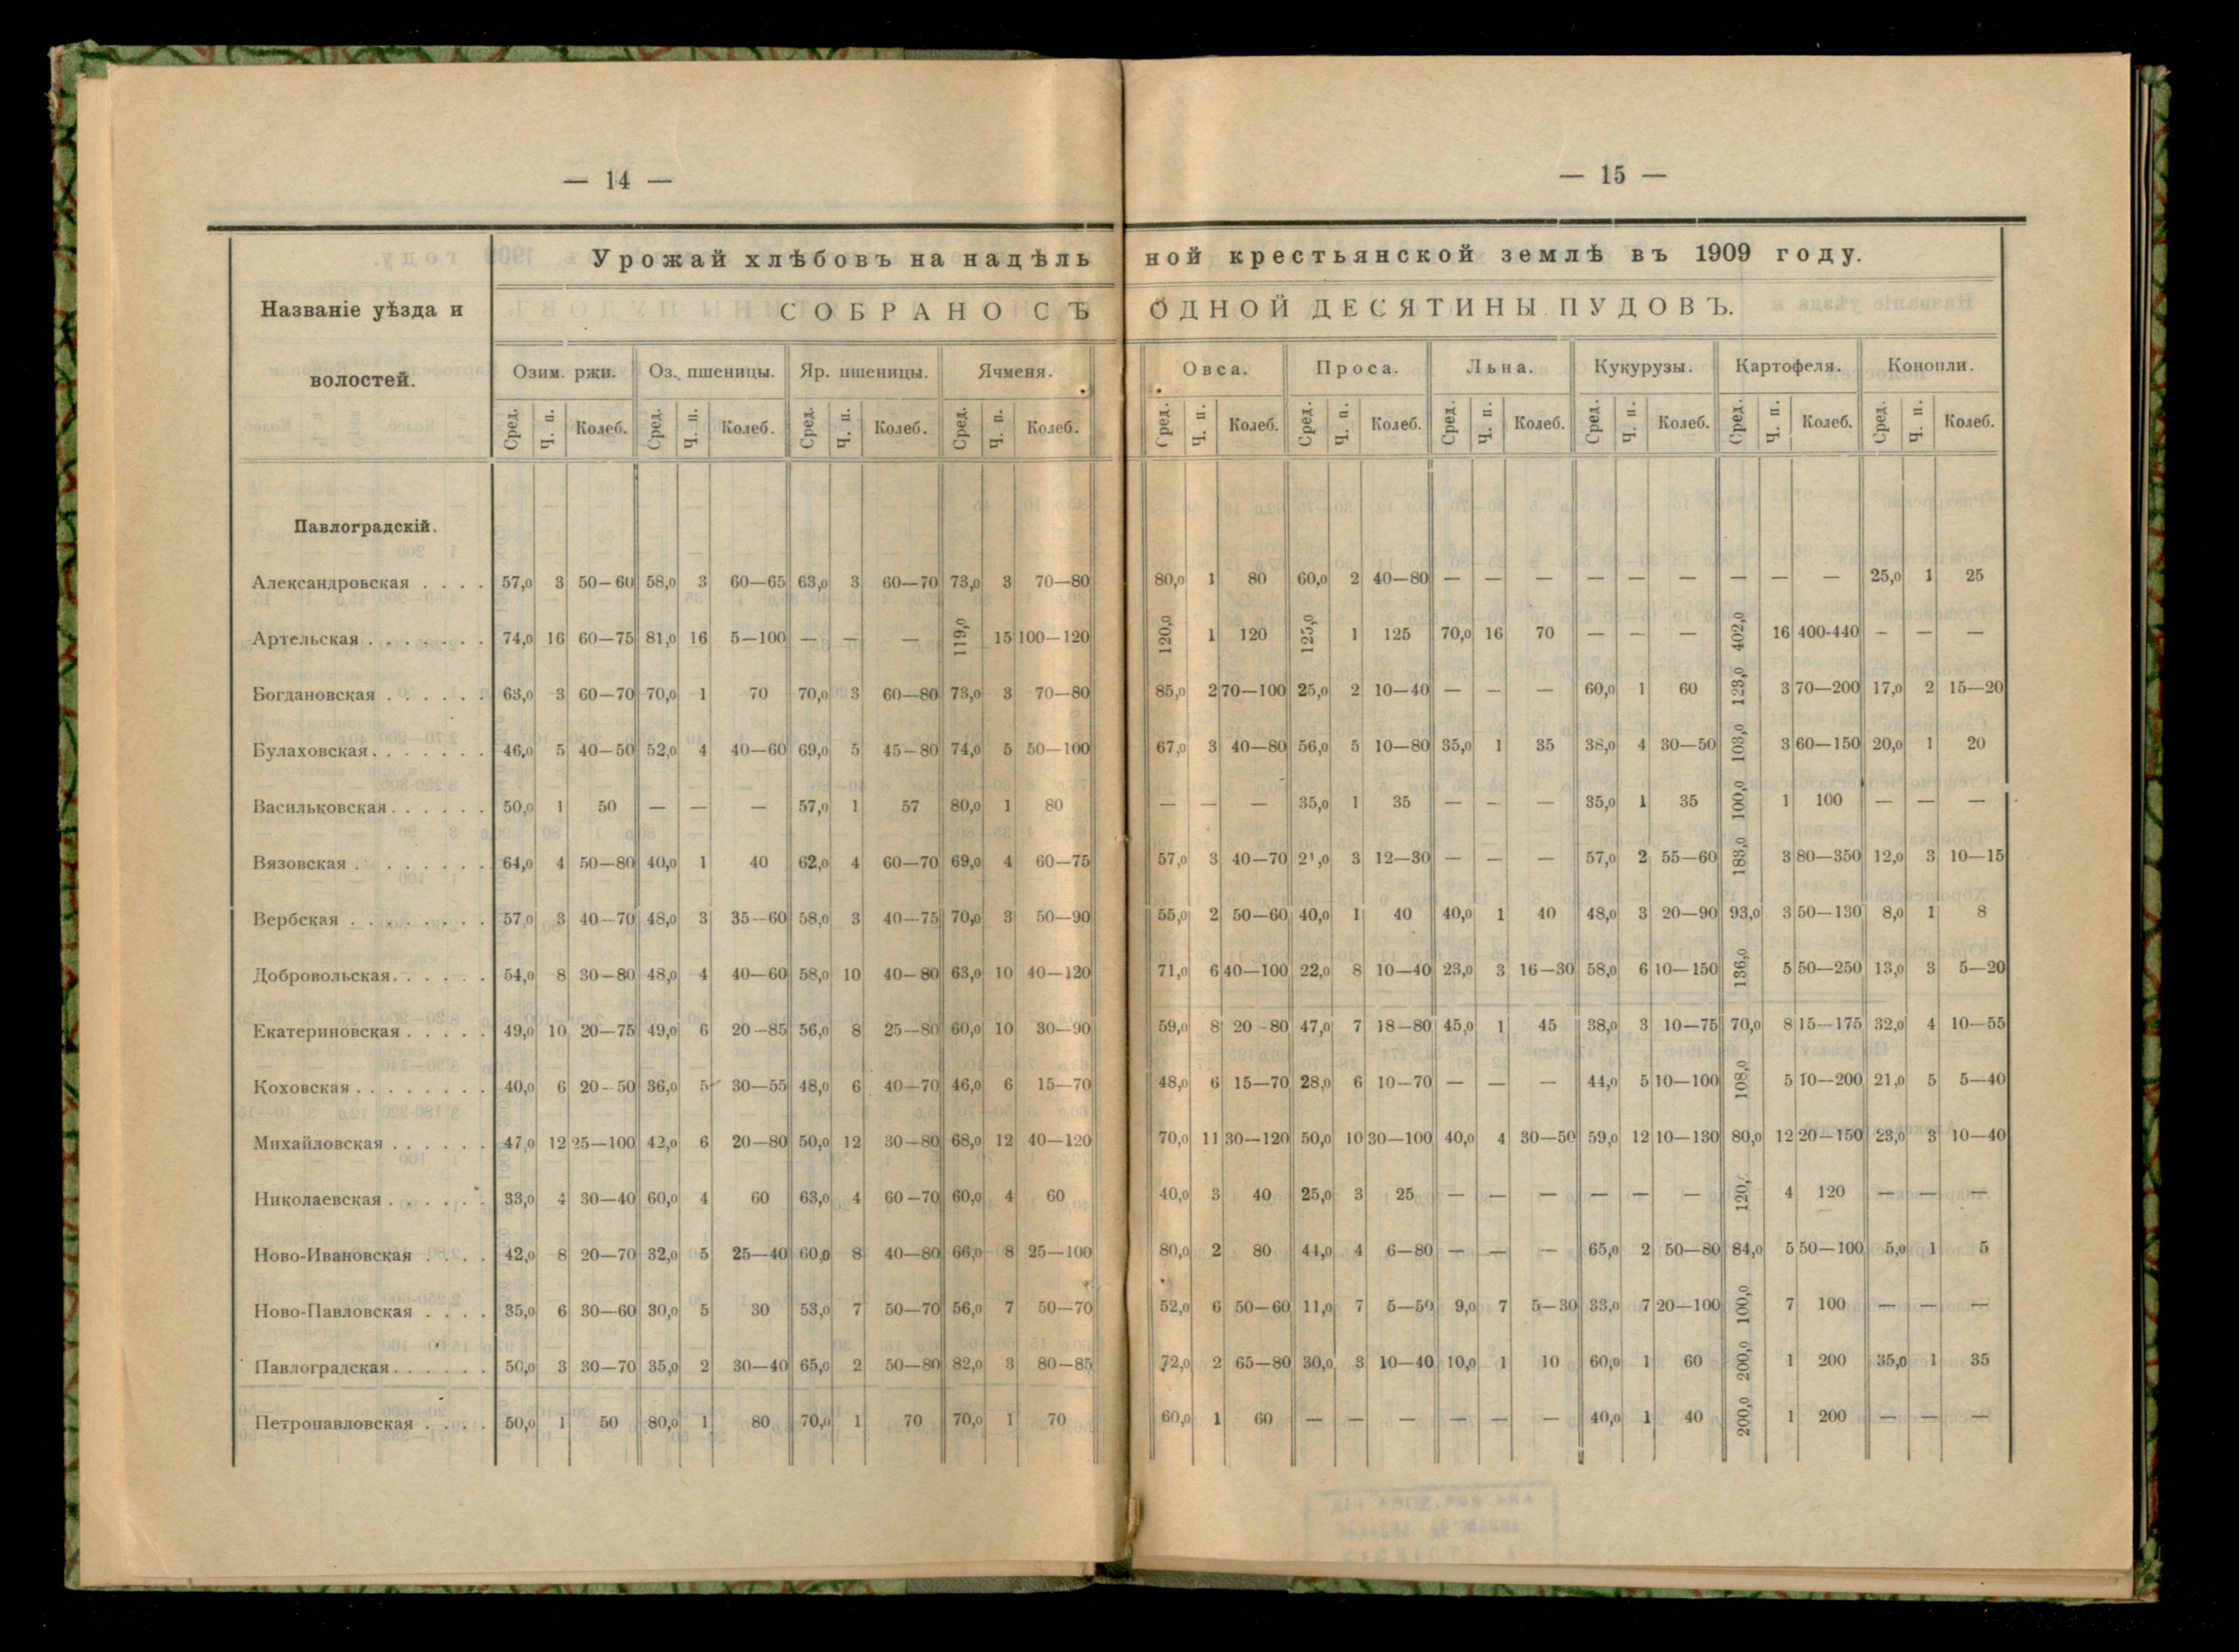 — 14 —
Названіе уѣзда и
волостей.
Урожай хлѣбовъ на надѣль
СОБРАНО СЪ
Озим. ржи. Оз. пшеницы. Яр. пшеницы. Ячменя.
Сред. Ч. п. Колеб. Сред. Ч. п. Колеб. Сред. Ч. п. Колеб. Сред. Ч. п. Колеб.
Павлоградскій.
Александровская . . . . 57,0 3 50—60 58,0 3 60—65 63,0 3 60—70 73,0 3 70—80
Артельская . . . . . . . 74,0 16 60—75 81,0 16 5—100 — — — 119,0 15 100—120
Богдановская . . . . . . 63,0 3 60—70 70,0 1 70 70,0 3 60—80 73,0 3 70—80
Булаховская . . . . . . . 46,0 5 40—50 52,0 4 40—60 69,0 5 45—80 74,0 5 50—100
Васильковская . . . . . . 50,0 1 50 — — — 57,0 1 57 80,0 1 80
Вязовская . . . . . . . . 64,0 4 50—80 40,0 1 40 62,0 4 60—70 69,0 4 60—75
Вербская . . . . . . . . 57,0 3 40—70 48,0 3 35—60 58,0 3 40—75 70,0 3 50—90
Добровольская . . . . . . 54,0 8 30—80 48,0 4 40—60 58,0 10 40—80 63,0 10 40—120
Екатериновская . . . . . 49,0 10 20—75 49,0 6 20—85 56,0 8 25—80 60,0 10 30—90
Коховская . . . . . . . . 40,0 6 20—50 36,0 5 30—55 48,0 6 40—70 46,0 6 15—70
Михайловская . . . . . . 47,0 12 25—100 42,0 6 20—80 50,0 12 30—80 68,0 12 40—120
Николаевская . . . . . . 33,0 4 30—40 60,0 4 60 63,0 4 60—70 60,0 4 60
Ново-Ивановская . . . . 42,0 8 20—70 32,0 5 25—40 60,0 8 40—80 66,0 8 25—100
Ново-Павловская . . . . 35,0 6 30—60 30,0 5 30 53,0 7 50—70 56,0 7 50—70
Павлоградская . . . . . . 50,0 3 30—70 35,0 2 30—40 65,0 2 50—80 82,0 3 80—85
Петропавловская . . . . 50,0 1 50 80,0 1 80 70,0 1 70 70,0 1 70
— 15 —
ной крестьянской землѣ въ 1909 году.
ОДНОЙ ДЕСЯТИНЫ ПУДОВЪ.
Овса. Проса. Льна. Кукурузы. Картофеля. Конопли.
Сред. Ч. п. Колеб. Сред. Ч. п. Колеб. Сред. Ч. п. Колеб. Сред. Ч. п. Колеб. Сред. Ч. п. Колеб. Сред. Ч. п. Колеб.
80,0 1 80 60,0 2 40—80 — — — — — — — — — 25,0 1 25
120,0 1 120 125,0 1 125 70,0 16 70 — — — 402,0 16 400-440 — — —
85,0 2 70—100 25,0 2 10—40 — — — 60,0 1 60 123,0 3 70—200 17,0 2 15—20
67,0 3 40—80 56,0 5 10—80 35,0 1 35 38,0 4 30—50 103,0 3 60—150 20,0 1 20
— — — 35,0 1 35 — — — 35,0 1 35 100,0 1 100 — — —
57,0 3 40—70 21,0 3 12—30 — — — 57,0 2 55—60 183,0 3 80—350 12,0 3 10—15
55,0 2 50—60 40,0 1 40 40,0 1 40 48,0 3 20—90 93,0 3 50—130 8,0 1 8
71,0 6 40—100 22,0 8 10—40 23,0 3 16—30 58,0 6 10—150 136,0 5 50—250 13,0 3 5—20
59,0 8 20—80 47,0 7 18—80 45,0 1 45 38,0 3 10—75 70,0 8 15—175 32,0 4 10—55
48,0 6 15—70 28,0 6 10—70 — — — 44,0 5 10—100 108,0 5 10—200 21,0 5 5—40
70,0 11 30—120 50,0 10 30—100 40,0 4 30—50 59,0 12 10—130 80,0 12 20—150 23,0 3 10—40
40,0 3 40 25,0 3 25 — — — — — — 120, 4 120 — — —
80,0 2 80 44,0 4 6—80 — — — 65,0 2 50—80 84,0 5 50—100 5,0 1 5
52,0 6 50—60 11,0 7 5—50 9,0 7 5—30 33,0 7 20—100 100,0 7 100 — — —
72,0 2 65—80 30,0 3 10—40 10,0 1 10 60,0 1 60 200,0 1 200 35,0 1 35
60,0 1 60 — — — — — — 40,0 1 40 200,0 1 200 — — —